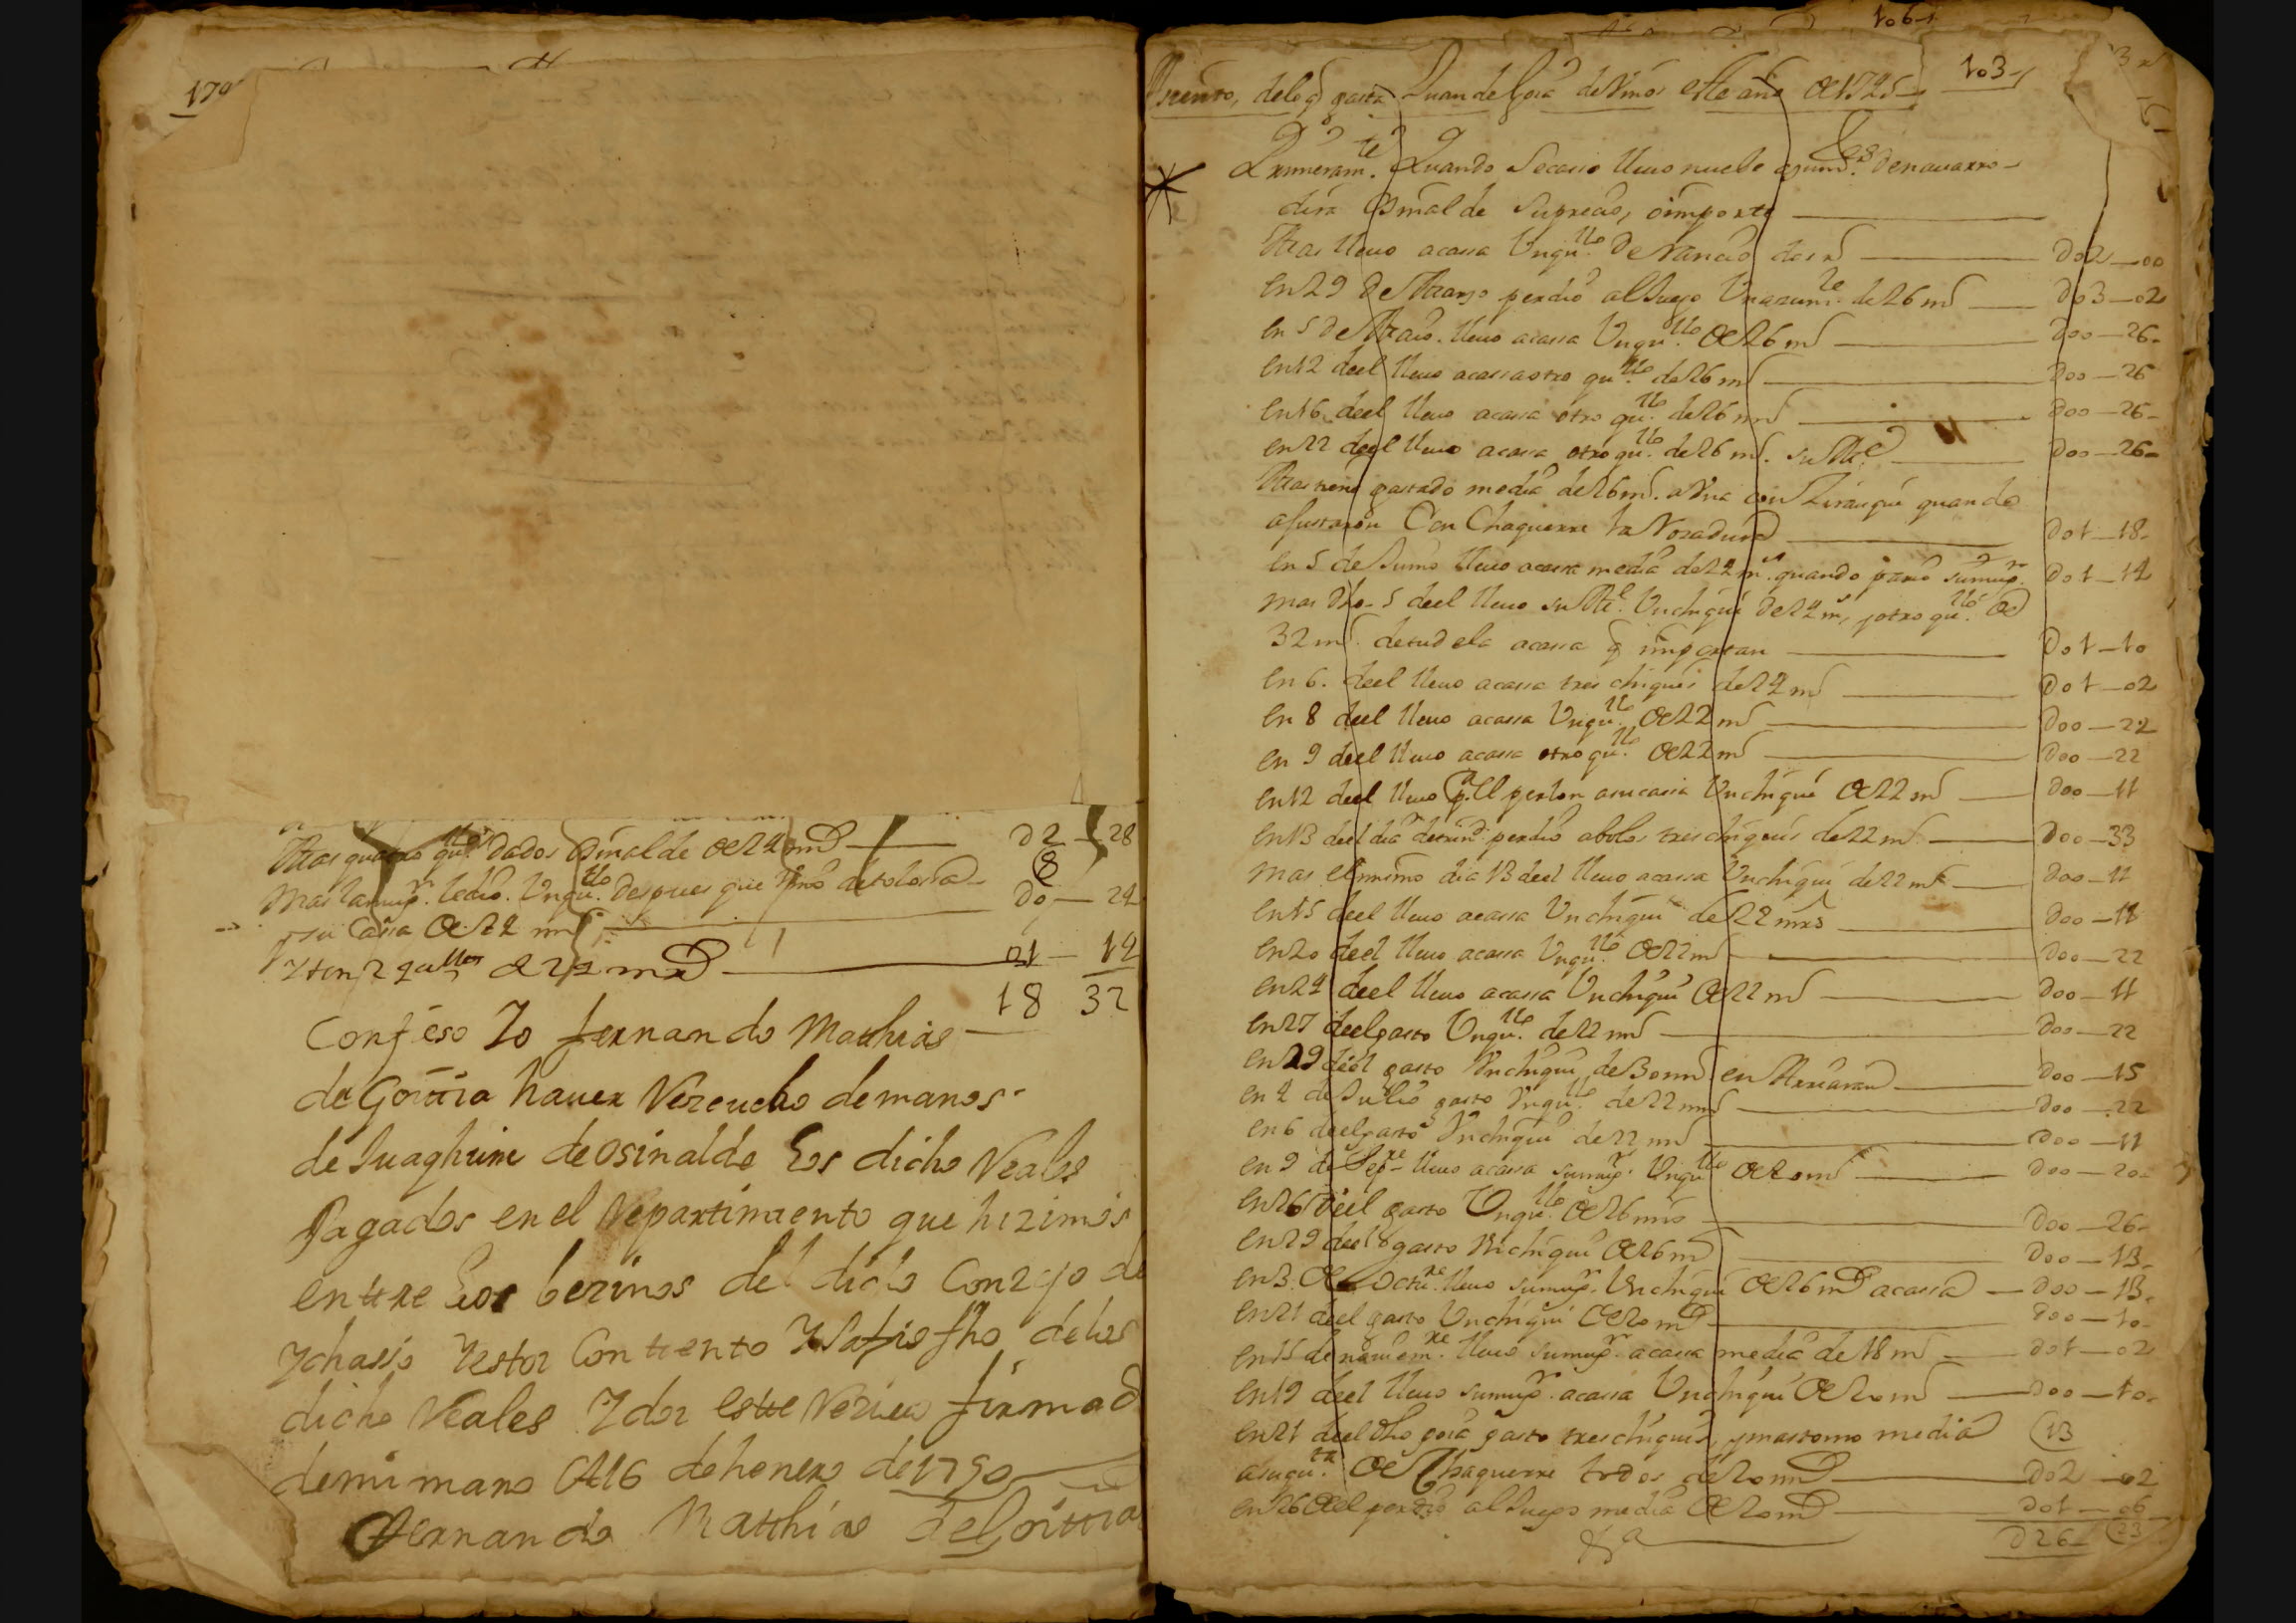 170
Mas quatro qu.llos dados Osinalde de 24 mrs D2 — 28
Mas lamug.r ledio. Unqu.llo despues que vino detolossa — D0 — 24
su cassa de 24 mrs
Yten 2 qullos de 24 mrs 01 — 14
18 32
Confieso Yo fernando Mathias
de Goitia hauer Rezeuido demanos
de Juaghuin deosinalde Los dicho Reales
Pagados en el Repartimiento que hizimos
entre Los bezinos del dicho Conzejo de
Ychasso Yestoi Contento YSatisfho delos
dicho Reales Y doi este Reziuo firmad
demimano A16 dehenero de1750
Fernando Matthias deGoittia
106
103
Asiento, delo q gasta Juan de Goia de Vino este año de 1725
Primeram.te Quando Secasso lleuo nuebe açum.res denauarro
dira Osinalde Suprecio, o importe
Mas lleuo acassa Unqu.llo de Rancio dos rs D02 — 00
En 29 de Marzo perdio al Juego Unazum.re de 26 mrs D03 — 02
En 5 de Maio. lleuo acassa Unqu.llo de 26 mrs D00 — 26
En 12 deel lleuo acassa otro qu.llo de 26 mrs D00 — 26
En 16 deel lleuo acassa otro qu.llo de 26 mrs D00 — 26
En 22 deel lleuo acassa otro qu.llo de 26 mrs. D00 — 26
Mas tiene gastado media de 26 mrs. quando
ajustaron Con Chaguerre la Rozadura D01 — 18
En 5 de Junio lleuo acassa media de 24 mrs quando pario sumug.r D01 — 14
mas dho 5 deel lleuo Unchiqui de 24 mrs, yotro qu.llo de
32 mrs detudela acassa q importan D01 — 10
En 6. deel lleuo acassa tres chiquis de 24 mrs D01 — 02
En 8 deel lleuo acassa Unqu.llo de 22 mrs D00 — 22
En 9 deel lleuo acassa otro qu.llo de 22 mrs D00 — 22
En 12 deel lleuo p.a el peston asucassa Unchiqui de 22 mrs D00 — 11
En 13 deel dia detrinid. perdio abolos treschiquis de 22 mrs D00 — 33
mas elmismo dia 13 deel lleuo acassa Unchiqui de 22 mrs D00 — 11
En 15 deel lleuo acassa Unchiqui de 22 mrs D00 — 11
En 20 deel lleuo acassa Unqu.llo de 22 mrs D00 — 22
En 24 deel lleuo acassa Unchiqui de 22 mrs D00 — 11
En 27 deel gasto Unqu.llo de 22 mrs D00 — 22
En 29 deel gasto Unchiqui de 30 mrs en D00 — 15
En 4 de Julio gasto Unqu.llo de 22 mrs D00 — 22
En 6 deel gasto Unchiqui de 22 mrs D00 — 11
En 9 de Sep.re lleuo acassa sumug.r Unqu.llo de 20 mrs D00 — 20
En 26 deel gasto Unqu.llo de 26 mrs D00 — 26
En 29 deel gasto Unchiqui de 26 mrs D00 — 13
En 3 de Octu.re lleuo sumug.r Unchiqui de 26 mrs acassa D00 — 13
En 21 deel gasto Unchiqui de 20 mrs D00 — 10
En 15 de nouiem.re lleuo sumug.r acassa media de 18 mrs D01 — 02
En 19 deel lleuo sumug.r acassa Unchiqui de 20 mrs D00 — 10
En 21 deel dho goia gasto treschiquis, ymastomo media (13)
de Chaguerre todos de 20 mrs D02 — 02
En 26 deel perdio al Juego media de 20 mrs D01 — 06
D26 — (23)